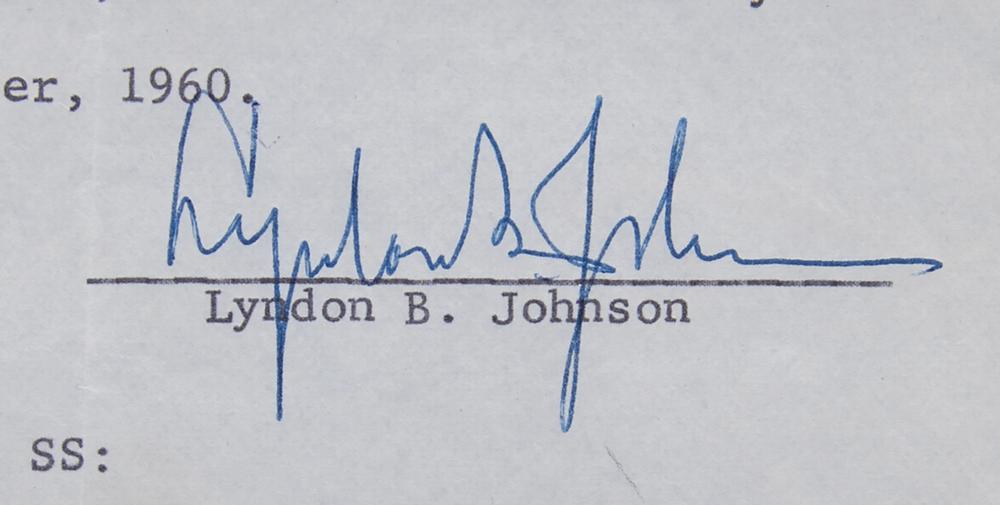 er, 1960.
Lyndon B. Johnson
Lyndon B. Johnson
SS: